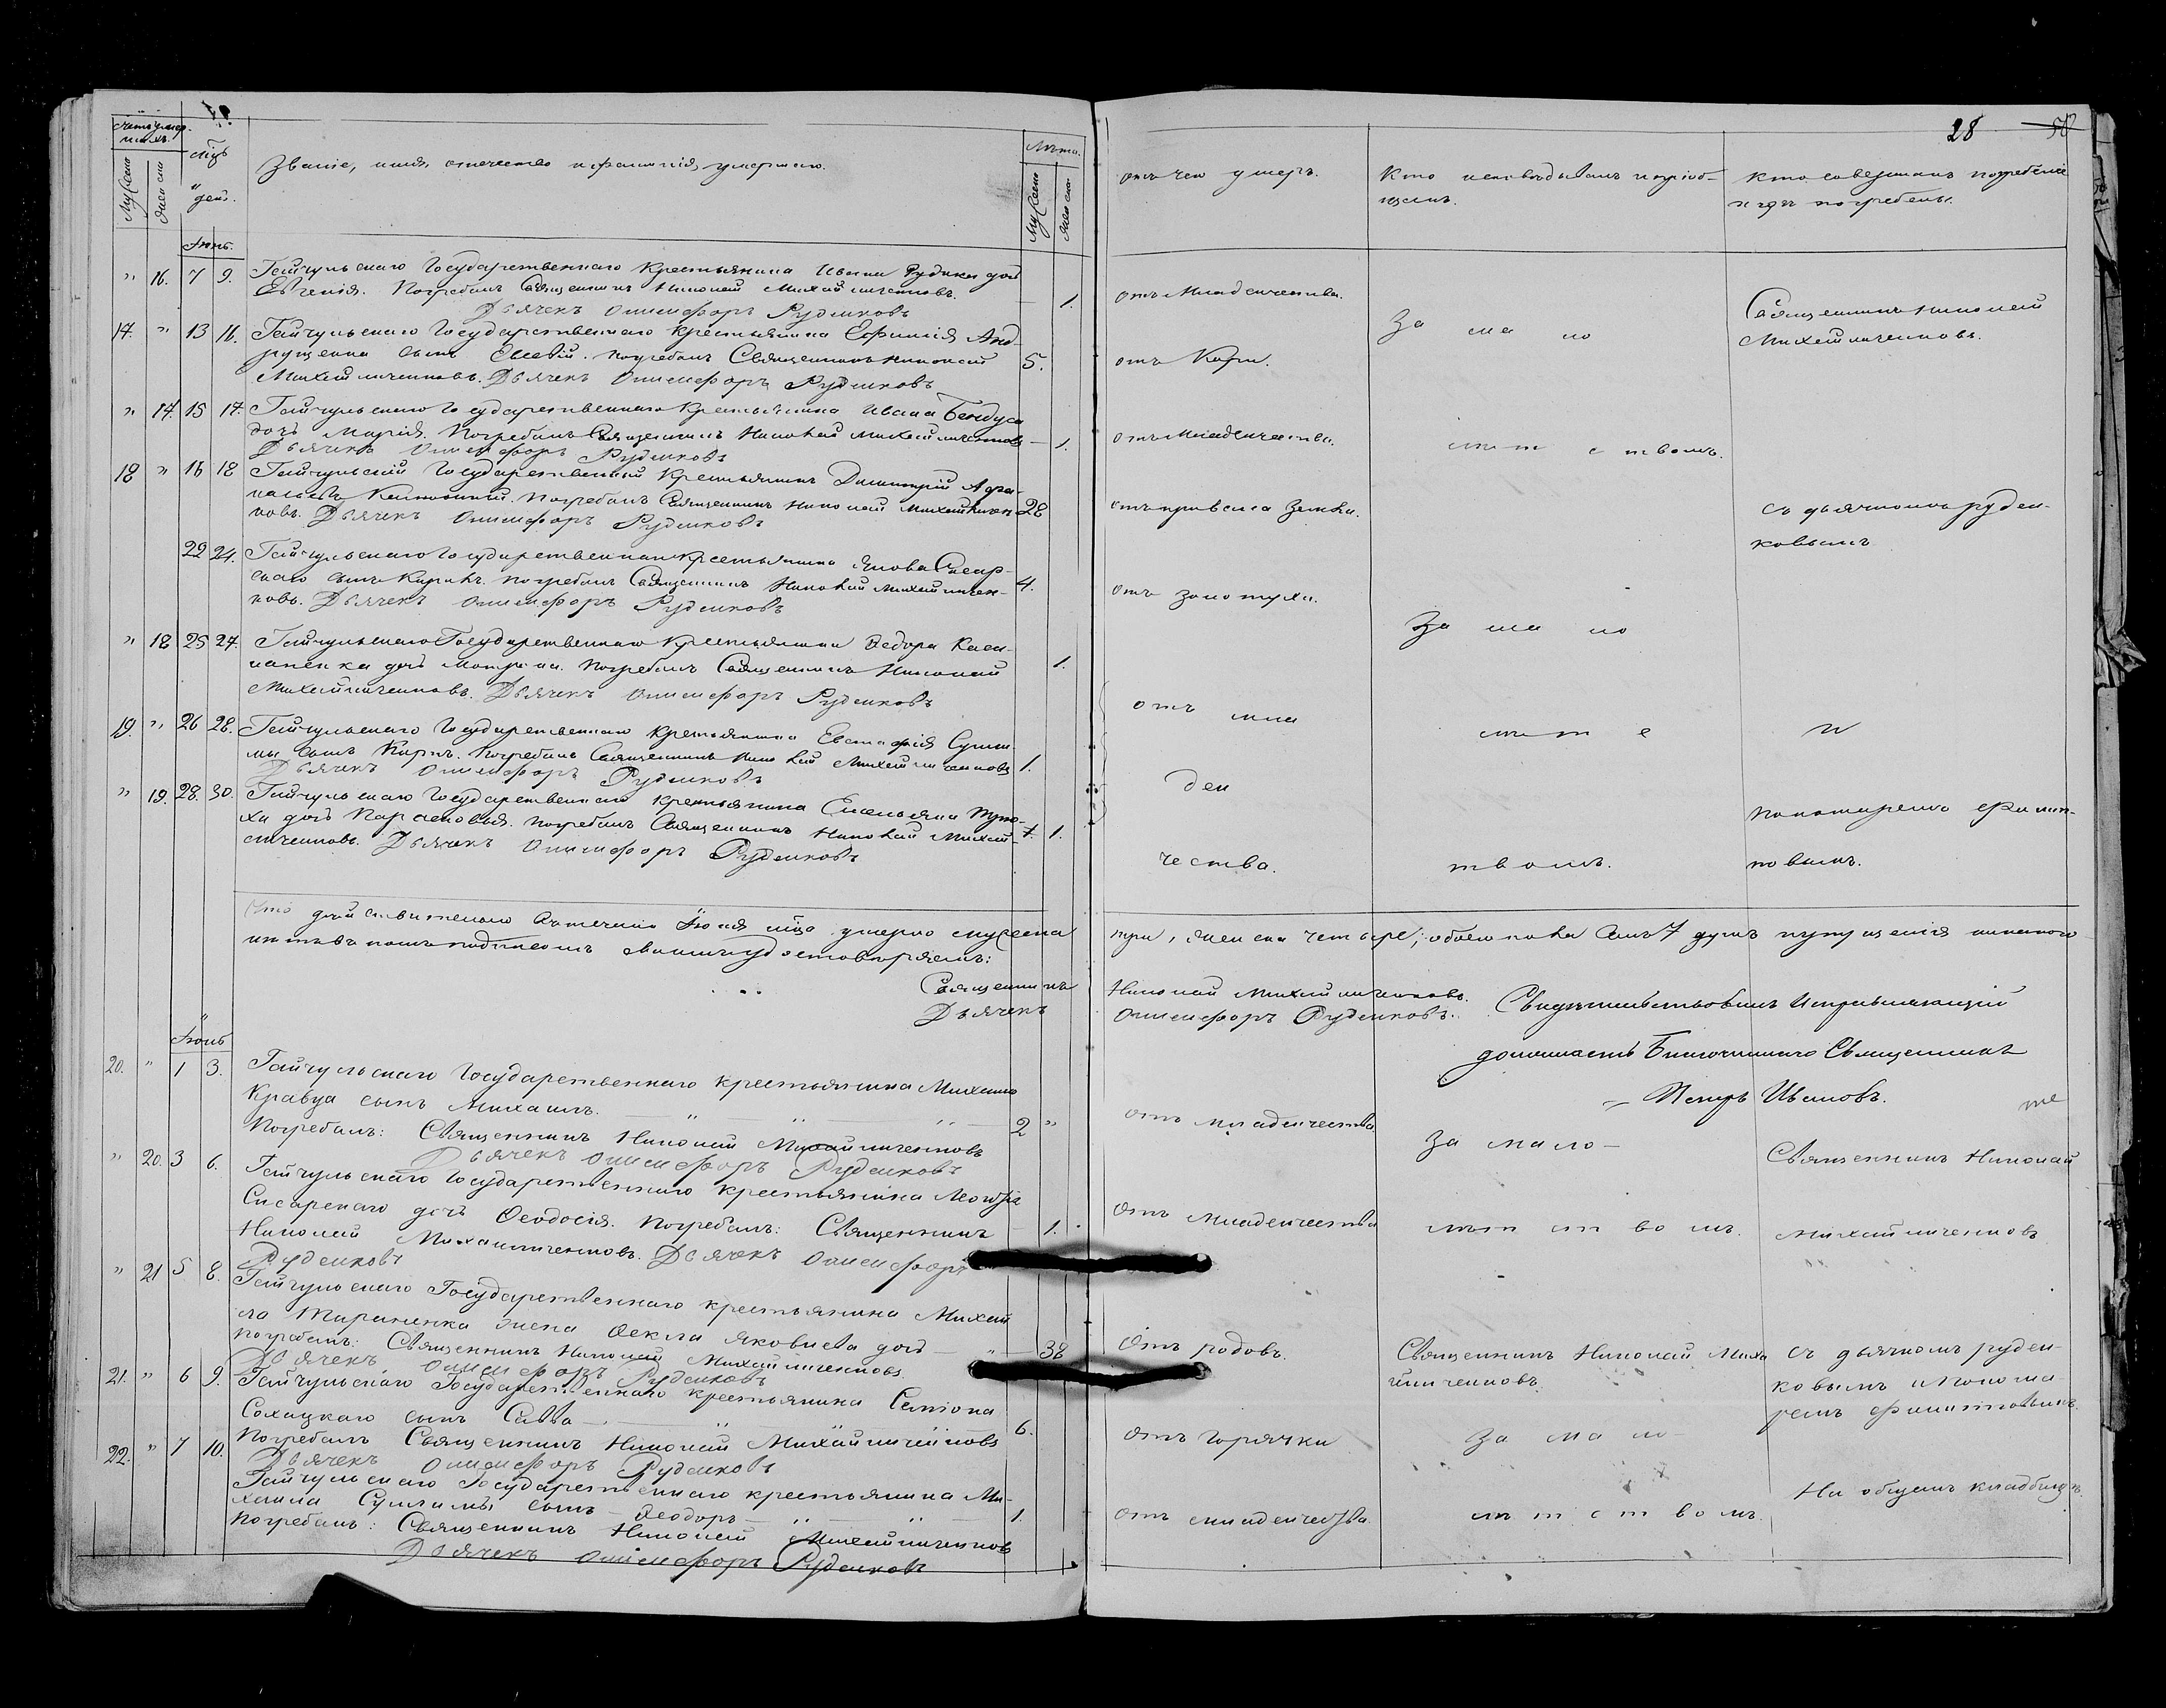 28 50
Счетъ умер-
шихъ.
Мужеска
Женска
Мѣц.
и
день.
Званіе, имя, отечество и фамилія, умершаго.
Лѣта.
Мужеска
Женска
отъ чего умеръ.
Кто исповѣдывалъ и пріоб-
щалъ.
Кто совершалъ погребеніе
и гдѣ погребены.
" 16. 7 9. Гайчульскаго Государственнаго Крестьянина Ивана Рудика дочь
Евгенія. Погребалъ Священникъ Николай Михайличенковъ. 1. отъ младенчества.
Дьячекъ Онисифоръ Руденковъ
Священникъ Николай
Михайличенковъ.
За ма ло
17. " 13 16. Гайчульскаго Государственнаго Крестьянина Ефимія Анд-
рущенка сынъ Евсевій. погребалъ Священникъ Николай 5. отъ Кори.
Михайличенковъ. Дьячекъ Онисифоръ Руденковъ
" 17. 15 17. Гайчульскаго Государственнаго Крестьянина Ивана Бендуса
дочь Марія. Погребалъ Священникъ Николай Михайличенковъ 1. отъ младенчества.
Дьячекъ Онисифоръ Руденковъ
лѣт с твомъ.
18 " 16 18 Гайчульскій Государственный Крестьянинъ Димитрій Афа-
Погребалъ Священникъ Николай Михайличен- 28
ковъ. Дьячекъ Онисифоръ Руденковъ
съ дьячкомъ Руден-
ковымъ
22 24. Гайчульскаго Государственнаго Крестьянина Якова Снсар-
скаго сынъ Погребалъ Священникъ Николай Михайличен- 4. отъ золотухи.
ковъ. Дьячекъ Онисифоръ Руденковъ
За ма ло
" 18 25 27. Гайчульскаго Государственнаго Крестьянина Ѳедора
дочь Матрона. Погребалъ Священникъ Николай 1.
Михайличенковъ. Дьячекъ Онисифоръ Руденковъ
отъ мла
19. " 26 28. Гайчульскаго Государственнаго Крестьянина Евстафія Сулии-
мы сынъ Карпъ. Погребалъ Священникъ Николай Михайличенковъ 1.
Дьячекъ Онисифоръ Руденковъ
лѣт с
и
ден
" 19. 28. 30. Гайчульскаго Государственнаго Крестьянина Емельяна
дочь Парасковія. погребалъ Священникъ Николай Михай- 1.
личенковъ. Дьячекъ Онисифоръ Руденковъ
чества.
твомъ.
пономаремъ Филип-
повымъ.
Что дѣйствительно въ теченіи Іюня мѣца умерло мужеска три, женска четыре; обоего пола 7 душъ
въ томъ подписомъ своимъ удостовѣряемъ:
Священникъ Николай Михайличенковъ.
Дьячекъ Онисифоръ Руденковъ.
Свидѣтельствовалъ Исправляющій
должность Благочиннаго Священникъ
Петръ Ивановъ.
Іюнь
20. " 1 3. Гайчульскаго Государственнаго крестьянина Михаила
Кравца сынъ Михаилъ. 2 " отъ младенчества
Погребалъ: Священникъ Николай Михайличенковъ
Дьячекъ Онисифоръ Руденковъ
За мало-
те
Священникъ Николай
" 20. 3 6. Гайчульскаго Государственнаго крестьянина
Снсарскаго дочь Ѳеодосія. Погребалъ: Священникъ 1. отъ младенчества
Николай Михайличенковъ. Дьячекъ Онисифоръ
Руденковъ
лѣт ст во мъ.
Михайличенковъ
" 21 5 8. Гайчульскаго Государственнаго крестьянина Михаи-
ла Тараненка жена Ѳекла Яковлева дочь 38 отъ родовъ.
погребалъ: Священникъ Николай Михайличенковъ.
Дьячекъ Онисифоръ Руденковъ
Священникъ Николай Миха
йличенковъ
съ дьячкомъ Руден-
ковымъ и Понома-
ремъ Филипповымъ.
21. " 6 9. Гайчульскаго Государственнаго крестьянина Симіона
Сохацкаго сынъ Савва 6. отъ Горячки
Погребалъ Священникъ Николай Михайличенковъ
Дьячекъ Онисифоръ Руденковъ
За ма ло
22. " 7 10. Гайчульскаго Государственнаго крестьянина Ми-
хаила Сулимы сынъ Ѳеодоръ 1. отъ младенчества.
Погребалъ: Священникъ Николай Михайличенковъ
Дьячекъ Онисифоръ Руденковъ
лѣт ст во мъ.
На общемъ кладбищѣ.